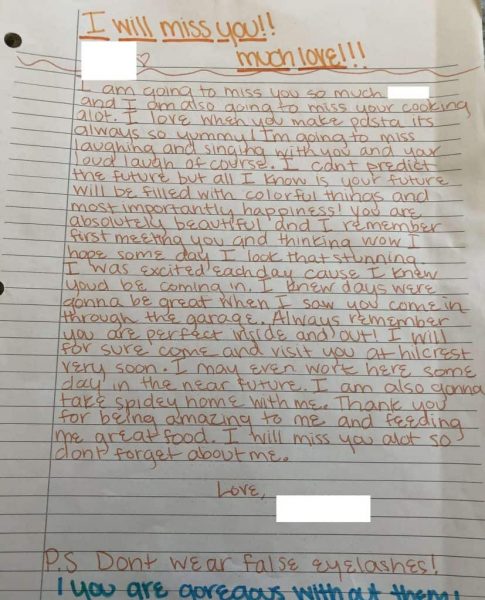 I will miss you!!
much love!!!
I am going to miss you so much
and I am also going to miss your cooking
alot. I love when you make pasta its
always so yummy! I'm going to miss
laughing and singing with you and your
loud laugh of course. I cant predict
the future but all I know is your future
will be filled with colorful things and
most importantly happiness! you are
absolutely beautiful and I remember
first meeting you and thinking wow I
hope some day I look that stunning.
I was excited each day cause I knew
youd be coming in. I knew days were
gonna be great when I saw you come in
through the garage. Always remember
you are perfect inside and out! I will
for sure come and visit you at hilcrest
very soon. I may even work here some
day in the near future. I am also gonna
take spidey home with me. Thank you
for being amazing to me and feeding
me great food. I will miss you alot so
dont forget about me.
Love,
P.S Dont wear false eyelashes!
! you are goregous with out them!